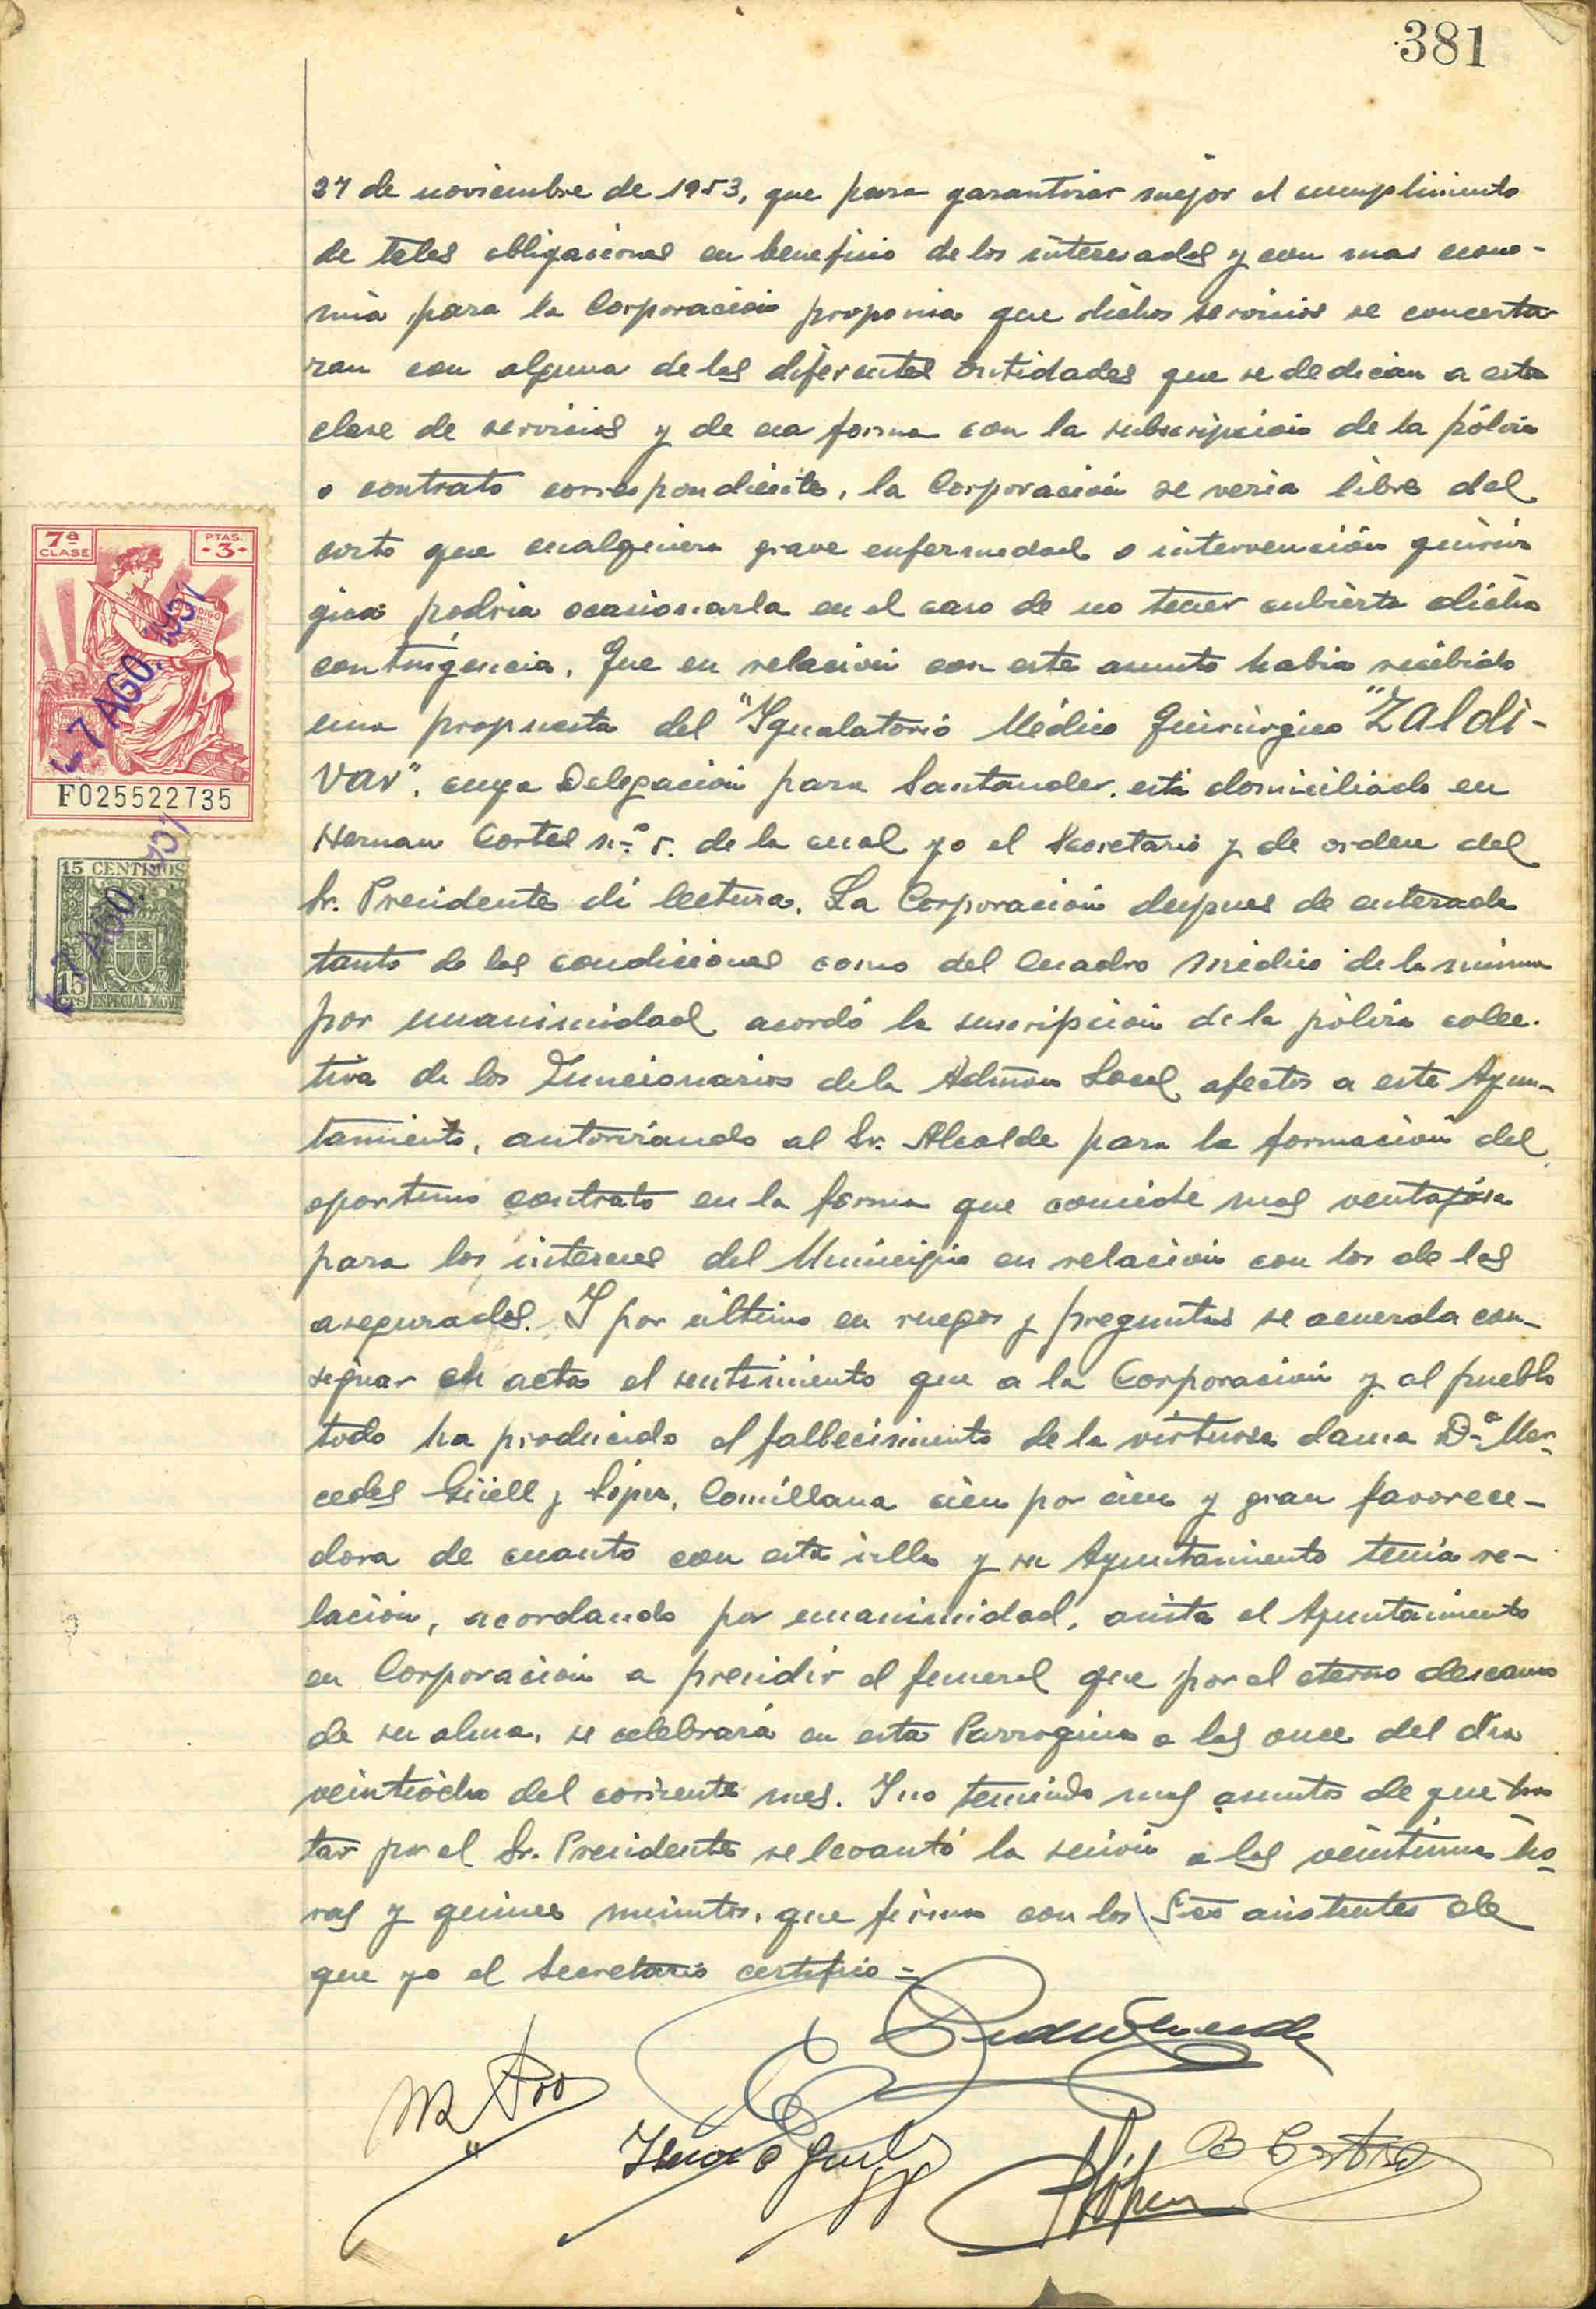 381
27 de noviembre de 1953, que para garantizar mejor el cumplimiento
de tales obligaciones en beneficio de los interesados y con mas econo-
mia para la Corporación proponia que dichos servicios se concerta
ran con alguna de las diferentes Entidades que se dedican a esta
clase de servicios y de esa forma con la subscripción de la póliza
o contrato correspondiente, la Corporación se veria libre del
costo que cualquiera grave enfermedad o intervención quirúr
gica podria ocasionarla en el caso de no tener cubierta dicha
contingencia. Que en relación con este asunto habia recibido
una propuesta del "Igualatorio Médico Quirúrgico "ZAldi-
var", cuya Delegación para Santander, está domiciliada en
Hernan Cortes n.º 5. de la cual yo el Secretario y de orden del
Sr. Presidente di lectura. La Corporación despues de enterada
tanto de las condiciones como del Cuadro médico de la misma
por unanimidad acordó la suscripción de la póliza colec-
tiva de los Funcionarios de la Admon Local afectos a este Ayun-
tamiento, autorizando al Sr. Alcalde para la formación del
oportuno contrato en la forma que considere mas ventajosa
para los intereses del Municipio en relación con los de los
asegurados. Y por último en ruegos y preguntas se acuerda con-
signar en acta el sentimiento que a la Corporación y al pueblo
todo ha producido el fallecimiento de la virtuosa dama D.ª Mer-
cedes Güell y López, Comillana cien por cien y gran favorece-
dora de cuanto con esta villa y su Ayuntamiento tenia re-
lación, acordando por unanimidad, asista el Ayuntamiento
en Corporación a presidir el funeral que por el eterno descanso
de su alma, se celebrará en esta Parroquia a las once del dia
veintiocho del corriente mes. Y no teniendo mas asuntos de que tra
tar por el Sr. Presidente se levantó la sesión a las veintiuna ho-
ras y quince minutos, que firma con los Sres asistentes de
que yo el Secretario certifico =
7ª CLASE
PTAS. -3-
CODIGO
- 7 AGO. 1957
F025522735
15 CENTIMOS
- 7 AGO. 1957
15 CTS ESPECIAL MOVIL
López